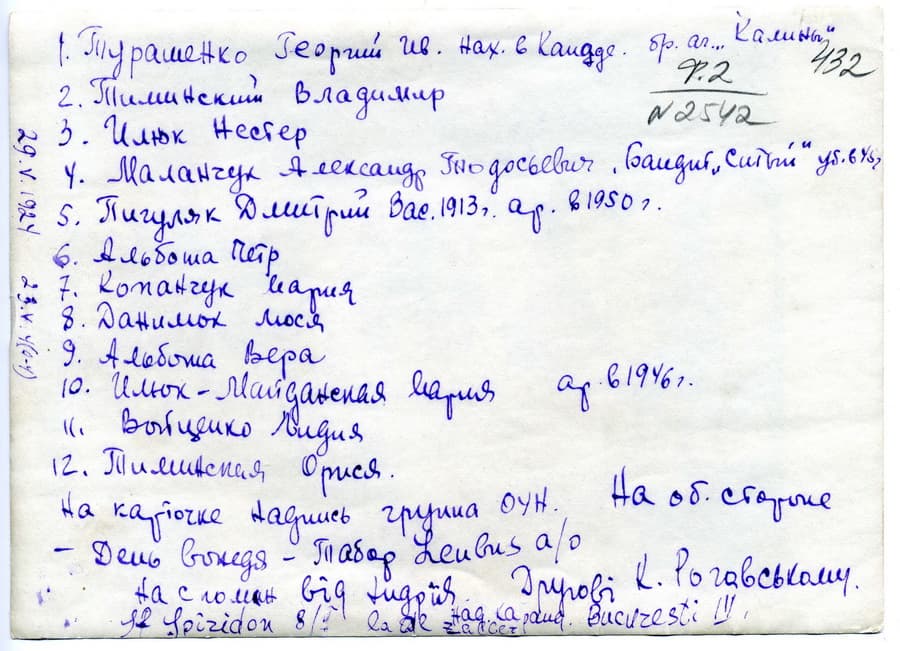 1. Турашенко Георгий Ив. нах. в Канаде. бр. аг. „Калины"
432
Ф.2
N 2542
2. Тиминский Владимир
3. Илюк Нестер
4. Маланчук Александр Бандит „Ситый" уб. в 45г.
5. Пигуляк Дмитрий Вас. 1913г. ар. в 1950г.
6. Альбота Петр
7. Копанчук Мария
8. Данилюк Люся
9. Альбота Вера
10. Илюк-Майданская Мария ар. в 1946г.
11. Войценко Лидия
12. Тиминская Орися.
На карточке надпись группа ОУН. На об. стороне
- День вождя - Табор Leubus a/o
На спомин від Андрія. Другові К. Рогавському.
Sf Spiridon 8/I București III.
29.V.1924